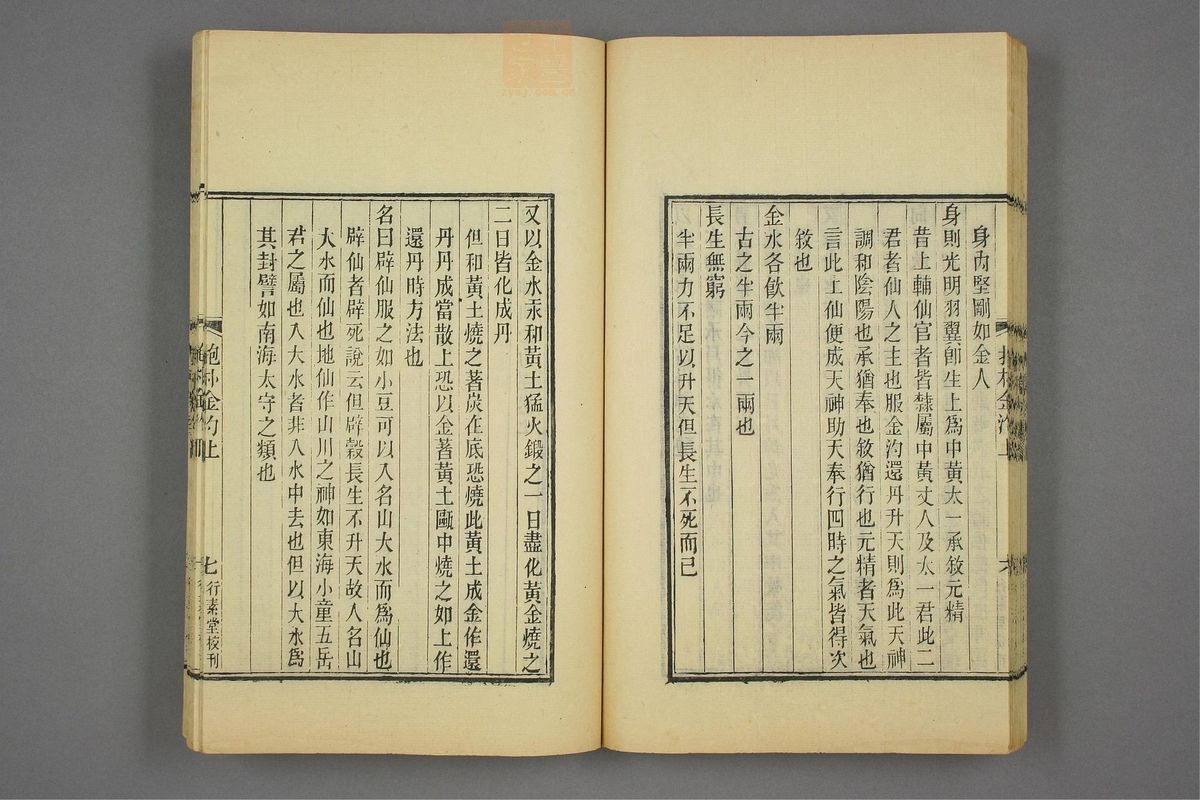 身內堅剛如金人
身則光明羽翼卽生上爲中黃太一承敘元精
昔上輔仙官者皆隸屬中黃丈人及太一君此二
君者仙人之主也服金汋還丹升天則爲此天神
調和陰陽也承猶奉也敘猶行也元精者天氣也
言此上仙便成天神助天奉行四時之氣皆得次
敘也
金水各飲半兩
古之半兩今之一兩也
長生無窮
半兩力不足以升天但長生不死而已
又以金水汞和黃土猛火鍛之一日盡化黃金燒之
二日皆化成丹
但和黃土燒之著炭在底恐燒此黃土成金作還
丹丹成當散上恐以金著黃土甌中燒之如上作
還丹時方法也
名曰辟仙服之如小豆可以入名山大水而爲仙也
辟仙者辟死說云但辟穀長生不升天故人名山
大水而仙也地仙作山川之神如東海小童五岳
君之屬也入大水者非入水中去也但以大水爲
其封譬如南海太守之類也
抱朴金汋上
七
行素堂校刊